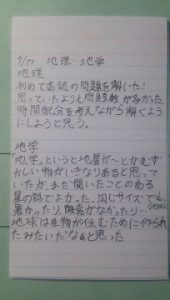 9/17 地理・地学
地理
初めて高認の問題を解いた！
思っていたよりも問題数が多かった
時間配分を考えながら解くように
しようと思う。
地学
地学というと地層が〜とかむず
かしい物がいきなりあると思って
いたが、まだ聞いたことのある
星の話でよかった。同じサイズでも
暑かったり、酸素がなかったり…
地球は生物が住むために作られ
たみたいだなぁと思った